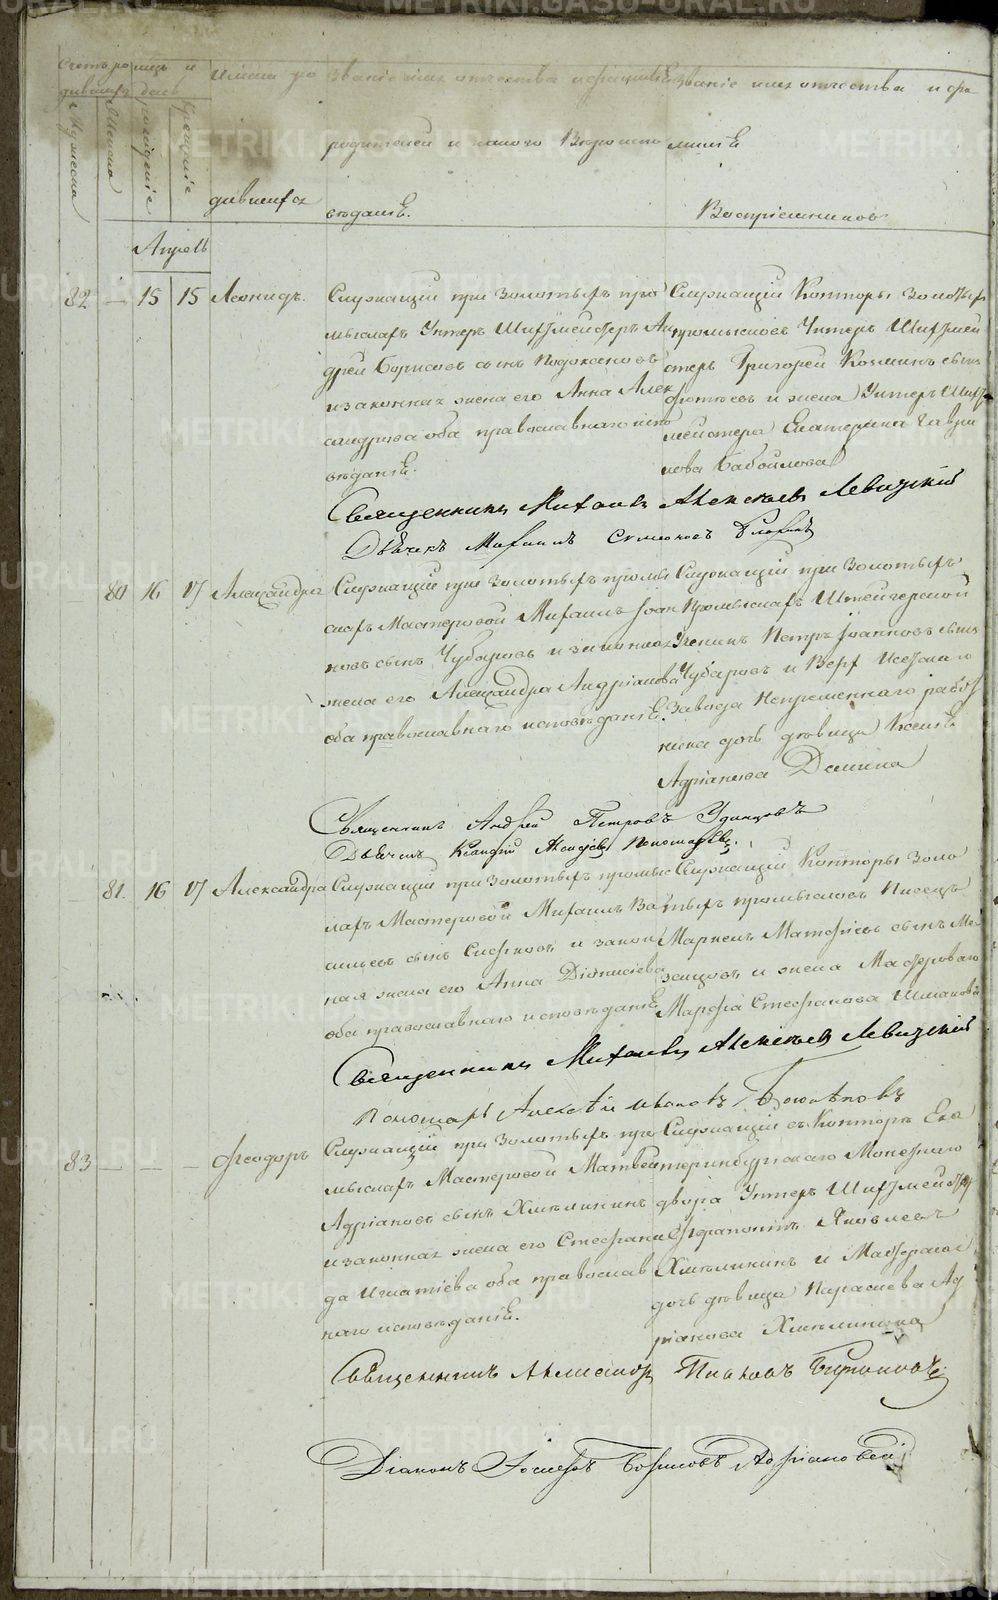 Счетъ родив
шихся
Мужеска
Женска
рожденіе
крещеніе
Имена ро
дившихся
Званіе имя отчество и фамилія
родителей и какого Вероиспо
веданія.
Званіе имя отчество и фа
милія
Воспріемниковъ
Апрель
82 — 15 15 Леонидъ.
Служащій при Золотыхъ про
мыслахъ Унтеръ Шихтмейстеръ Ан
дрей Борисовъ сынъ
и законная жена его Анна Алек
сандрова оба православнаго испо
веданія.
Служащій Конторы Золотыхъ
промысловъ Унтеръ Шихтмей
стеръ Григорей Козминъ сынъ
и жена Унтеръ Шихт
мейстера Екатерина Гаври
лова Бабоилова
Священникъ Михаилъ Алексѣевъ Левицкій
Дьячекъ Михаилъ Симеоновъ
80 16 17 Александра
Служащій при Золотыхъ промы
слахъ Мастеровой Михаилъ Іоан
новъ сынъ Чубаровъ и законная
жена его Александра Андріанова
оба православнаго исповеданія.
Служащій при Золотыхъ
Промыслахъ Штейгерской
Ученикъ Петръ Іоанновъ сынъ
Чубаровъ и Верх Исетскаго
Завода Непременнаго работ
ника дочь девица Ксенія
Адрианова Демина
Священникъ Андрей Петровъ Удинцовъ
Дьячекъ Клавдій Алексѣевъ Пономаревъ.
81. 16 17 Александра
Служащій при Золотыхъ промыс
лахъ Мастеровой Михаилъ Ва
сильевъ сынъ и закон
ная жена его Анна Діонисіева
оба православнаго исповеданія
Служащій Конторы Золо
тыхъ промысловъ Писецъ
Маркелъ Матфеевъ сынъ Ме
зенцовъ и жена Мастероваго
Марфа Стефанова
Священникъ Михаилъ Алексѣевъ Левицкій
Пономарь Алексѣй Ивановъ
83 — — — Феодоръ
Служащій при Золотыхъ про
мыслахъ Мастеровой Матвей
Адріановъ сынъ Хмелининъ
и законная жена его Стефани
да Игнатіева оба православ
наго исповеданія.
Служащій въ Конторе Ека
теринбургскаго Монетнаго
двора Унтеръ Шихтмейстеръ
Ферапонтъ Яковлевъ
Хмелининъ и Мастерской
дочь девица Параскева Ад
ріанова Хмелинина
Священникъ Александръ Павловъ
Діаконъ Іосифъ Борисовъ Адріановскій
METRIKI.GASO-URAL.RU